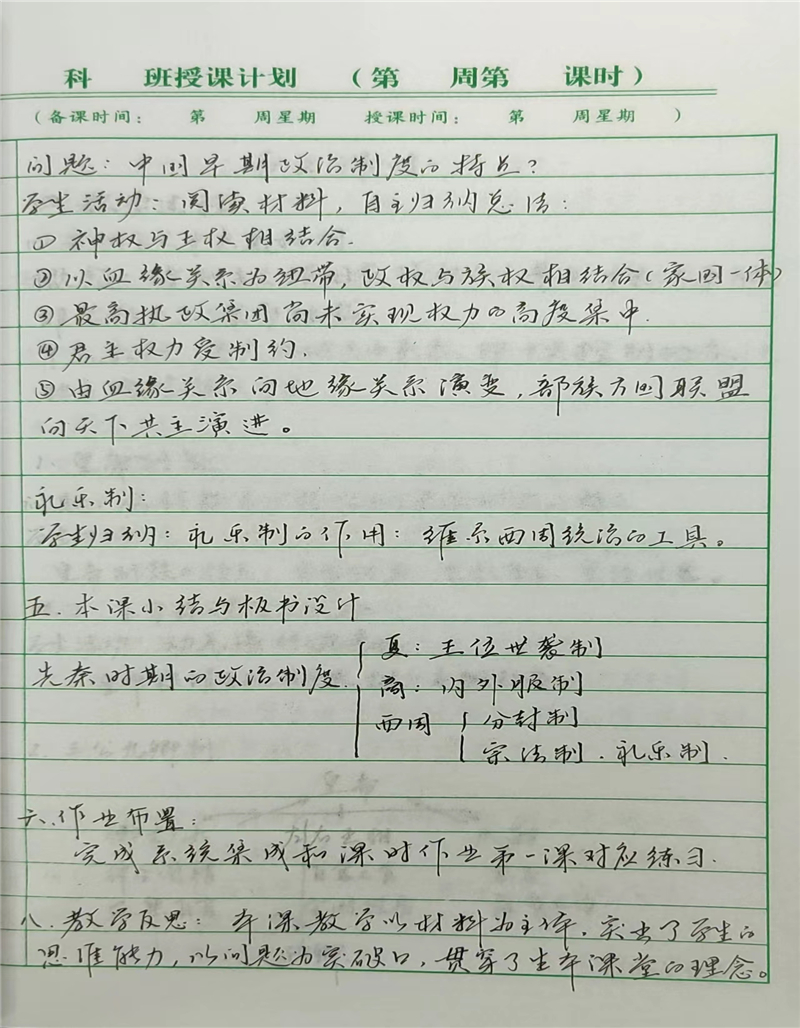 科 班授课计划 （第 周第 课时）
（备课时间： 第 周星期 授课时间： 第 周星期 ）
问题：中国早期政治制度的特点？
学生活动：阅读材料，自主归纳总结：
① 神权与王权相结合.
② 以血缘关系为纽带，政权与族权相结合（家国一体）
③ 最高执政集团尚未实现权力的高度集中.
④ 君主权力受制约.
⑤ 由血缘关系向地缘关系演变，部族方国联盟
向天下共主演进。
礼乐制：
学生归纳：礼乐制的作用：维系西周统治的工具。
五.本课小结与板书设计
先秦时期的政治制度.
夏：王位世袭制
商：内外服制
西周 分封制
宗法制.礼乐制.
六.作业布置：
完成系统集成和课时作业第一课对应练习.
八.教学反思：本课教学以材料为主体，突出了学生的
思维能力，以问题为突破口，贯穿了生本课堂的理念。